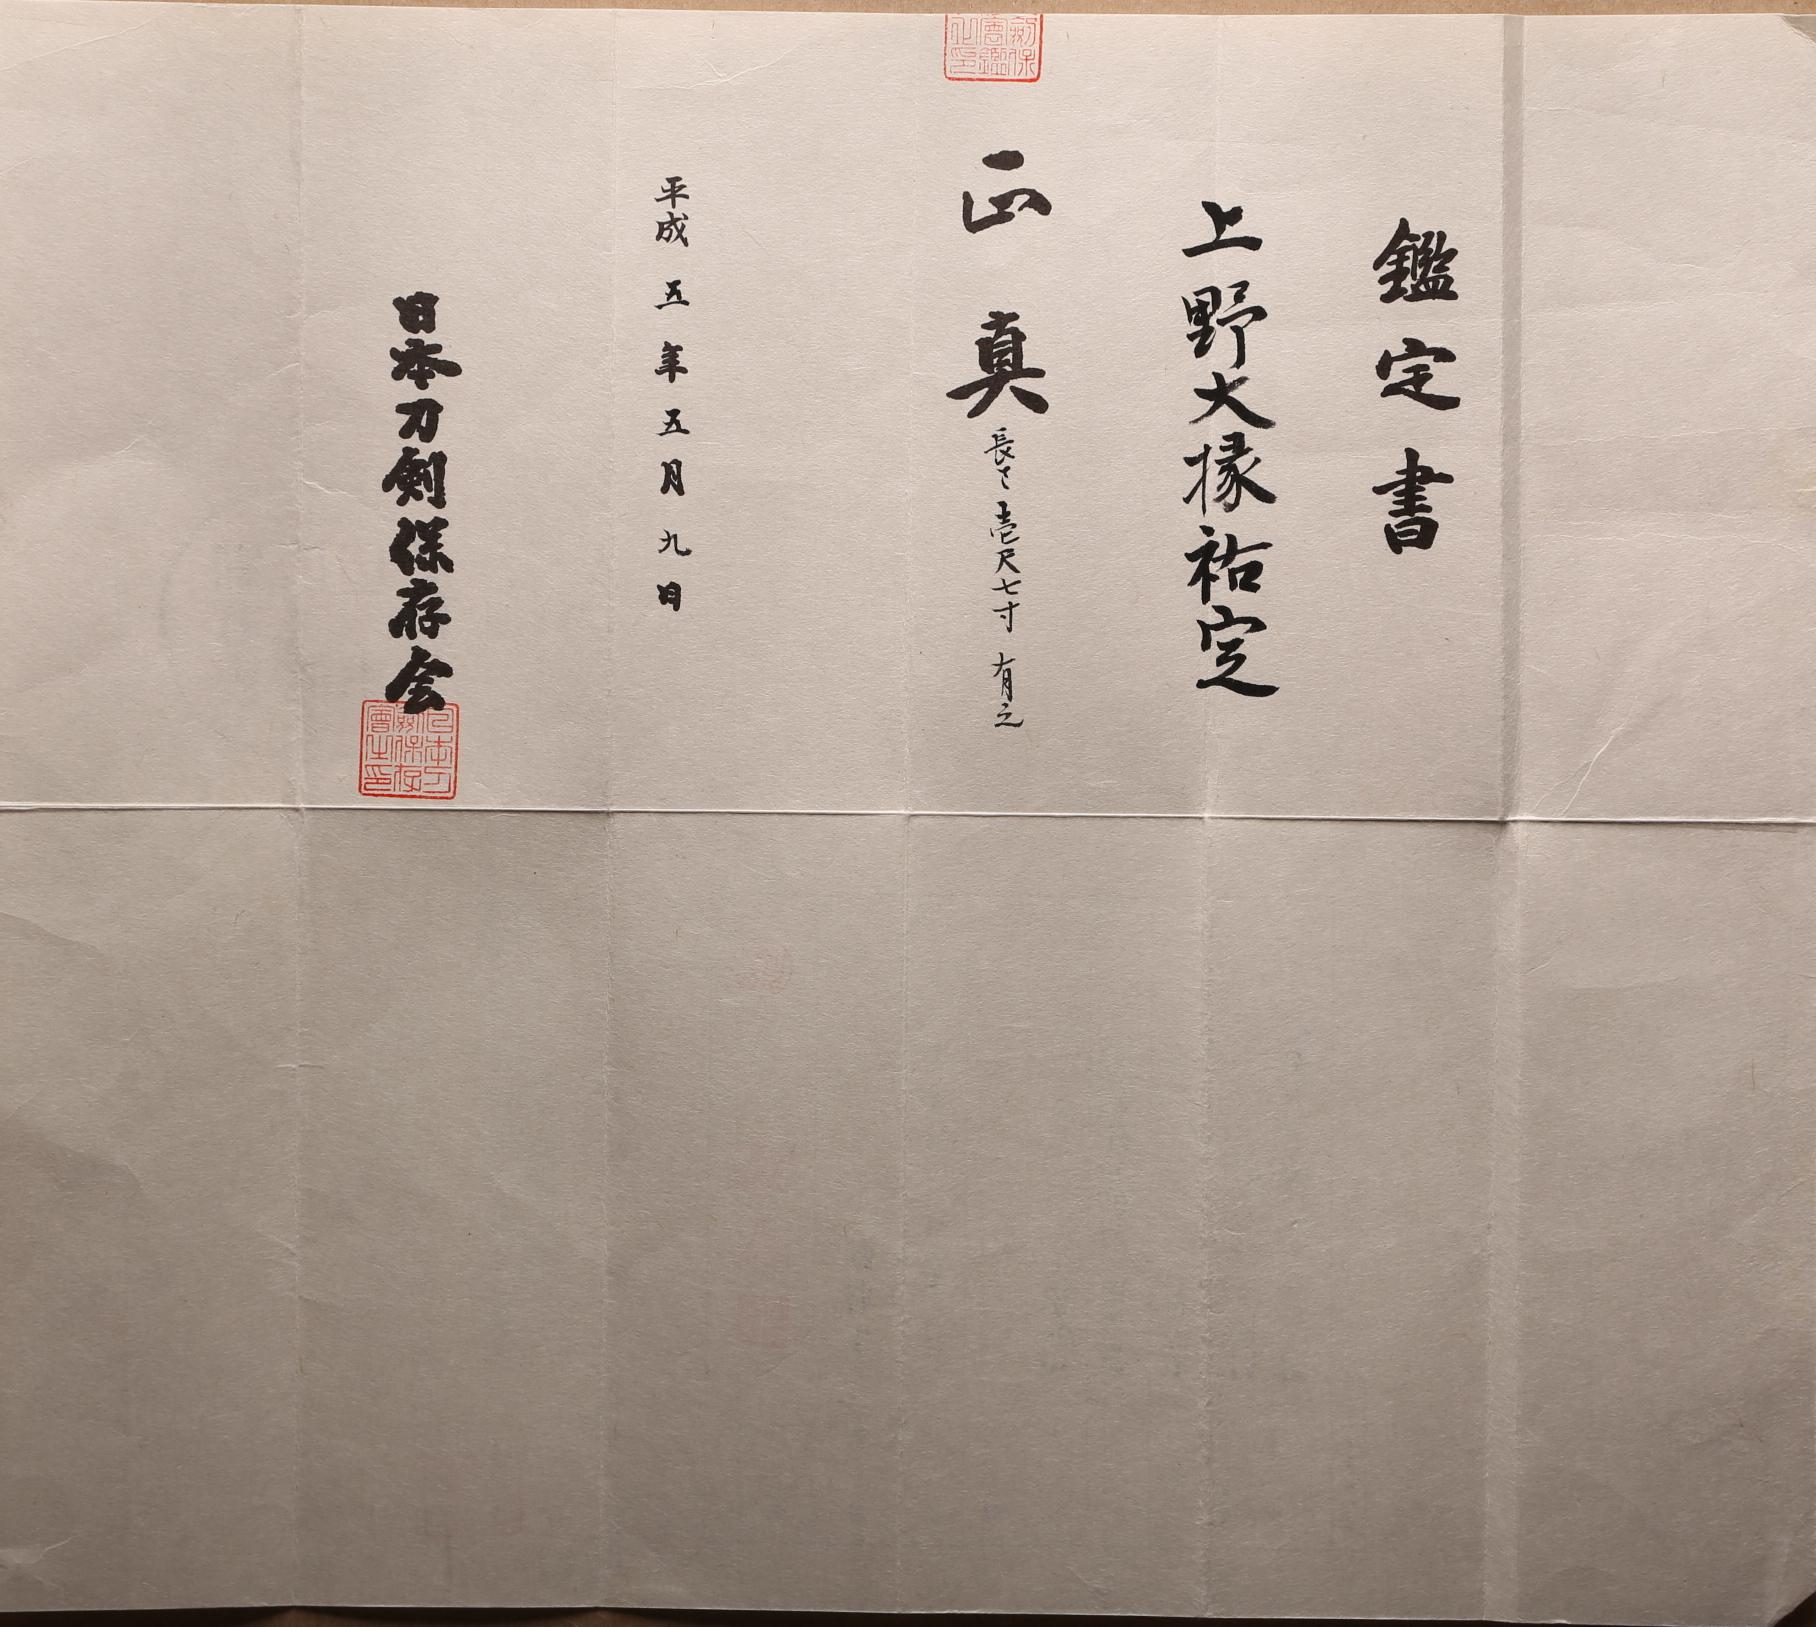 鑑定書
上野大掾祐定
正真
長さ壱尺七寸 有之
平成五年五月九日
日本刀剣保存会